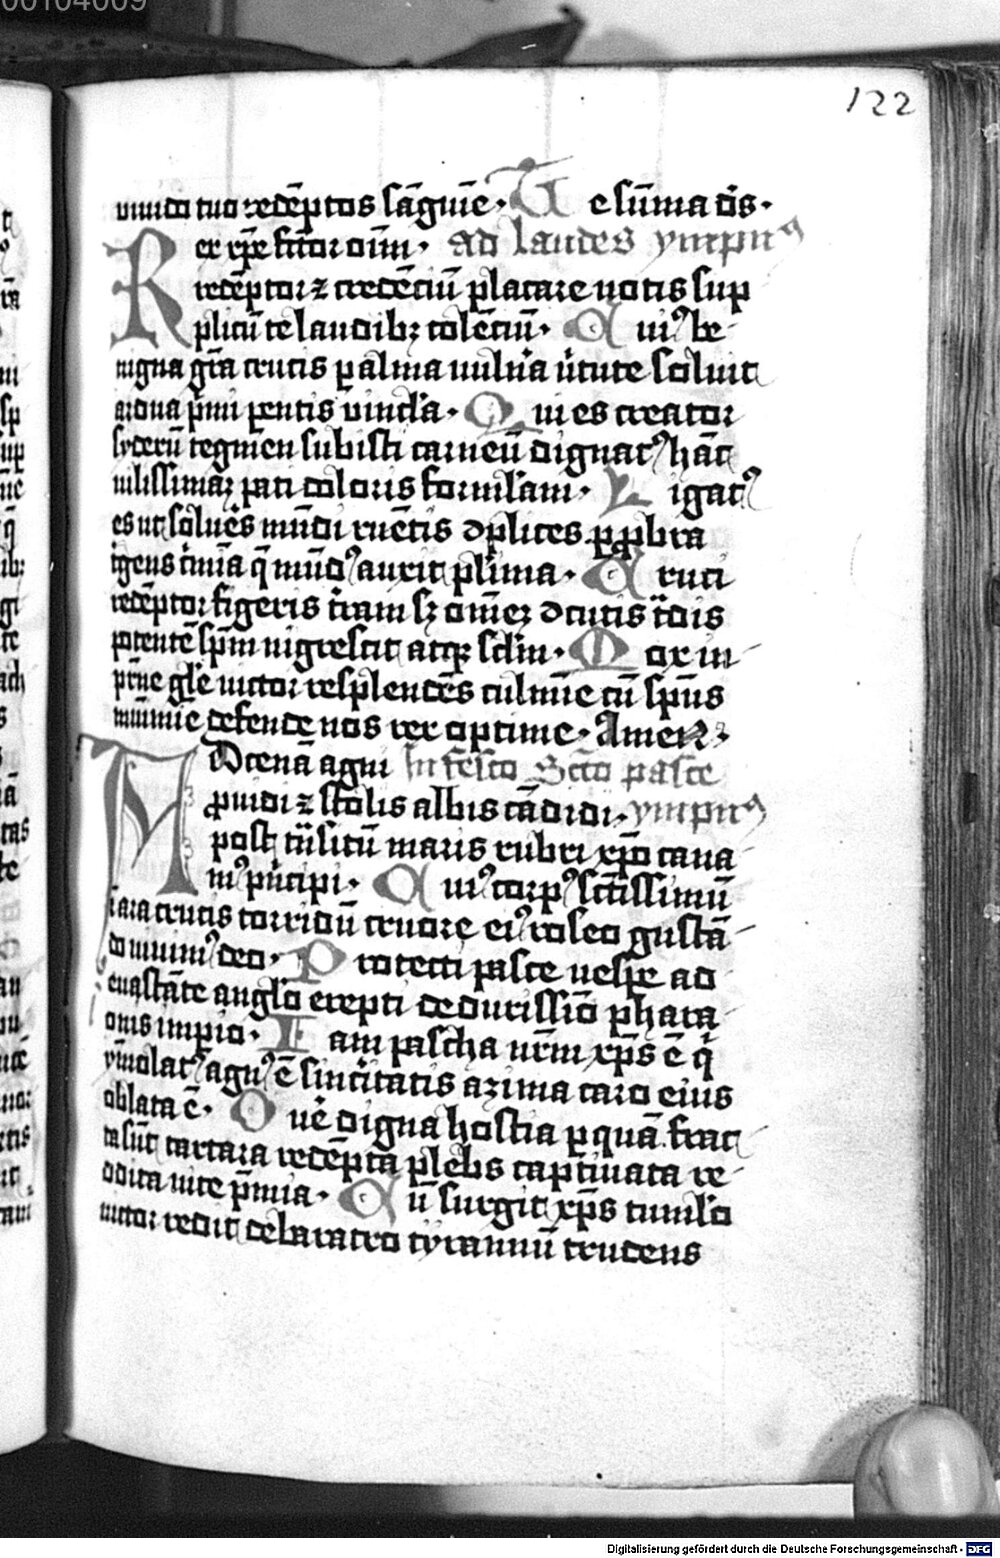 00104009
122
mundo tuo redēptos sāguīe · Te sūma ds̄ ·
Rex xp̄e fc̄tor oīm · ad laudes ympnꝰ
redēptor ⁊ credēciū placare uotis sup
plicū te laudibꝫ colēciū · Cuiꝰ be-
nigna gr̄a crucis p alma uuln̄a ūtute soluit
ardua p̄mi pentis uincl̄a · Qui es creator
syderū tegmen subisti carneū dignatꝰ hāc
uilissimaꝫ pati doloris formulam · Ligatꝰ
es ut solueēs mūdi ruētis 9plices p pbra
tgens c̄mīa q̄ mūdꝰ auxit pl̄ima · Cruci
redēptor figeris t̄ram sꝫ omēꝫ 9cutis t̄dis
potentē sp̄m nigrescit atqꝫ sclm̄ · Mox in
pr̄ne gl̄e uictor resplendēs culmīe cū sp̄us
munimīe defende nos rex optime · Amen ·
AD cenā agni In festo Scto pasce
M puidi ⁊ stolis albis cādidi · ympnꝰ
post tn̄sitū maris rubri xp̄o cana
mꝰ p̄ncipi · Cuiꝰ corpꝰ sc̄tissimū
ī ara crucis torridū cruore eiꝰ roseo gustā-
do uiuimꝰ deo · Protecti pasce uesꝑe ad
euastāte angl̄o erepti de durissīo phara
onis impio · Iam pascha nr̄m xp̄s ē q̇
ymolatꝰ agnꝰ ē sinc̄itatis azima caro eius
oblata ē · O uē digna hostia p quā frac
ta sūt tartara redēpta plebs captiuata re-
ddita uite p̄mia · Cū surgit xp̄s tumul̄o
uictor redit de baratro tyrannū trudens
Digitalisierung gefördert durch die Deutsche Forschungsgemeinschaft - DFG